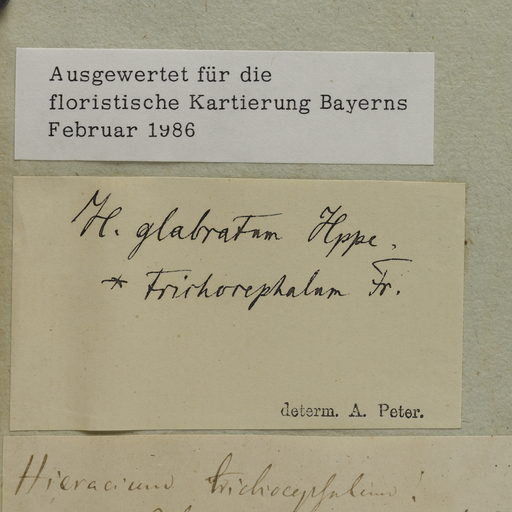 Ausgewertet für die
floristische Kartierung Bayerns
Februar 1986
H. glabratum Hppe.
* trichocephalum Fr.
determ. A. Peter.
Hieracium trichocephalum!